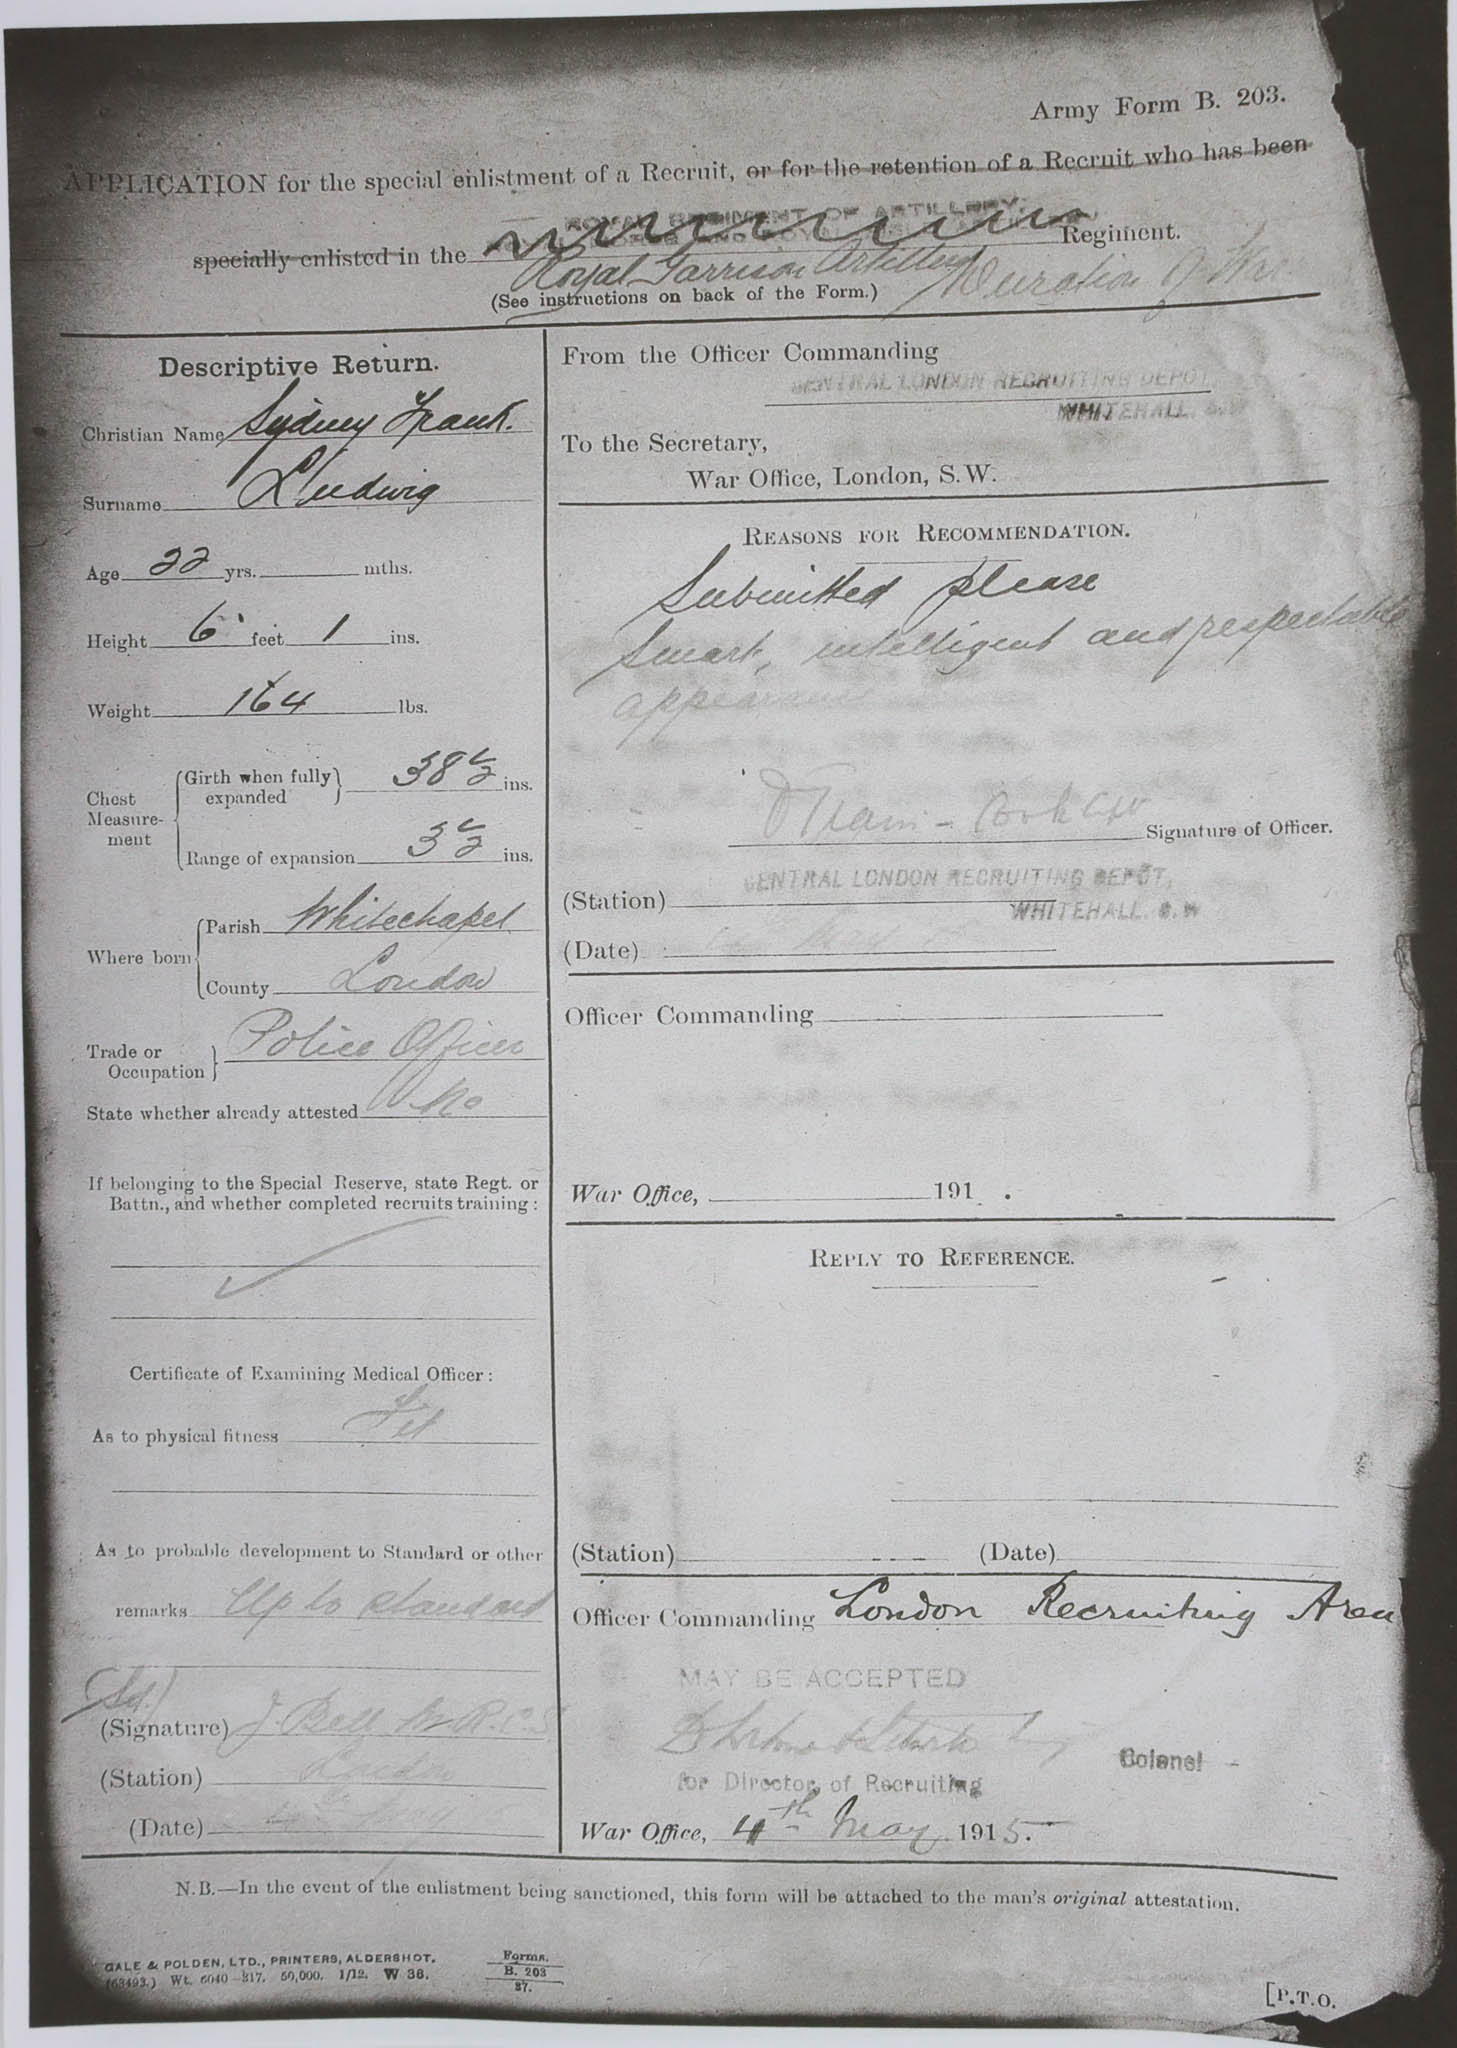 Army Form B. 203.
APPLICATION for the special enlistment of a Recruit, or for the retention of a Recruit who has been
ROYAL REGIMENT OF ARTILLERY,
specially enlisted in the Regiment.
Royal Garrison Artillery Duration of War
(See instructions on back of the Form.)
Descriptive Return.
Christian Name Sydney Frank.
Surname Ludwig
Age 22 yrs. mths.
Height 6 feet 1 ins.
Weight 164 lbs.
Chest Measure-
ment
Girth when fully
expanded 38½ ins.
Range of expansion 3½ ins.
Where born
Parish Whitechapel
County London
Trade or
Occupation Police Officer
State whether already attested No
If belonging to the Special Reserve, state Regt. or
Battn., and whether completed recruits training:
Certificate of Examining Medical Officer:
As to physical fitness Fit
As to probable development to Standard or other
remarks Up to standard
(Sd.)
(Signature) J. Bell M.R.C.S
(Station) London
(Date)
From the Officer Commanding
CENTRAL LONDON RECRUITING DEPOT,
WHITEHALL. S.W
To the Secretary,
War Office, London, S.W.
REASONS FOR RECOMMENDATION.
Submitted please
Smart, intelligent and respectable
appearance
Signature of Officer.
CENTRAL LONDON RECRUITING DEPOT,
(Station) WHITEHALL. S.W
(Date)
Officer Commanding
War Office, 191 .
REPLY TO REFERENCE.
(Station) (Date)
Officer Commanding London Recruiting Area
MAY BE ACCEPTED
Colonel
for Director of Recruiting
War Office, 4th May 1915.
N.B.—In the event of the enlistment being sanctioned, this form will be attached to the man's original attestation.
GALE & POLDEN, LTD., PRINTERS, ALDERSHOT.
(63493.) Wt. 6040—317. 50,000. 1/12. W 36.
Forms.
B. 203
37.
[P.T.O.